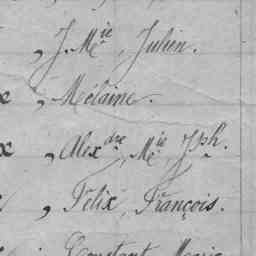 , J. Mie, Julien.
, Mélaine.
x , Alexdre, Mie Jph.
, Félix, François.
Constant Marie